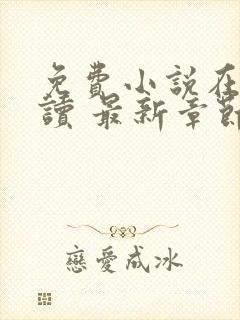 免費小說在
讀 最新章節
戀愛成冰